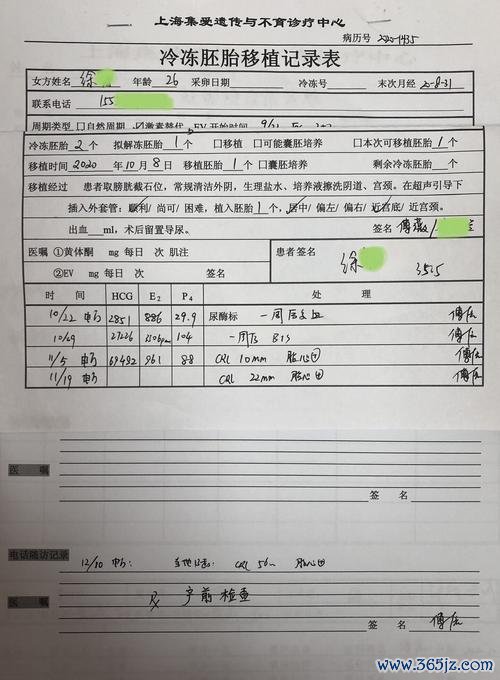 上海集爱遗传与不育诊疗中心
病历号 2020-1435
冷冻胚胎移植记录表
女方姓名 徐 年龄 26 采卵日期 冷冻号 末次月经 20-8-31
联系电话 155
周期类型 □自然周期 ☑激素替代 EV 开始时间 9/
冷冻胚胎 2 个 拟解冻胚胎 1 个 □移植 □可能囊胚培养 □本次可移植胚胎 1 个
移植时间 2020 年 10 月 8 日 移植胚胎 1 个 □囊胚培养 剩余冷冻胚胎 个
移植经过 患者取膀胱截石位，常规清洁外阴，生理盐水、培养液擦洗阴道、宫颈。在超声引导下
插入外套管：顺利/ 尚可/ 困难，植入胚胎 1 个，居中/ 偏左/ 偏右/ 近宫底/ 近宫颈。
出血 ml，术后留置导尿。 签名
医嘱 ①黄体酮 mg 每日 次 肌注
患者签名 徐
②EV mg 每日 次 签名
时 间 HCG E2 P4 处 理
10/22 2851 886 29.9 尿酶标
10/29 27226 104 一周后 B超
11/5 69492 961 88 CRL 10mm 胎心
11/19 CRL 22mm 胎心
医 嘱
签 名
电话随访记录
12/10 CRL 56 胎心
医 嘱
产前检查
签 名
www.365jz.com